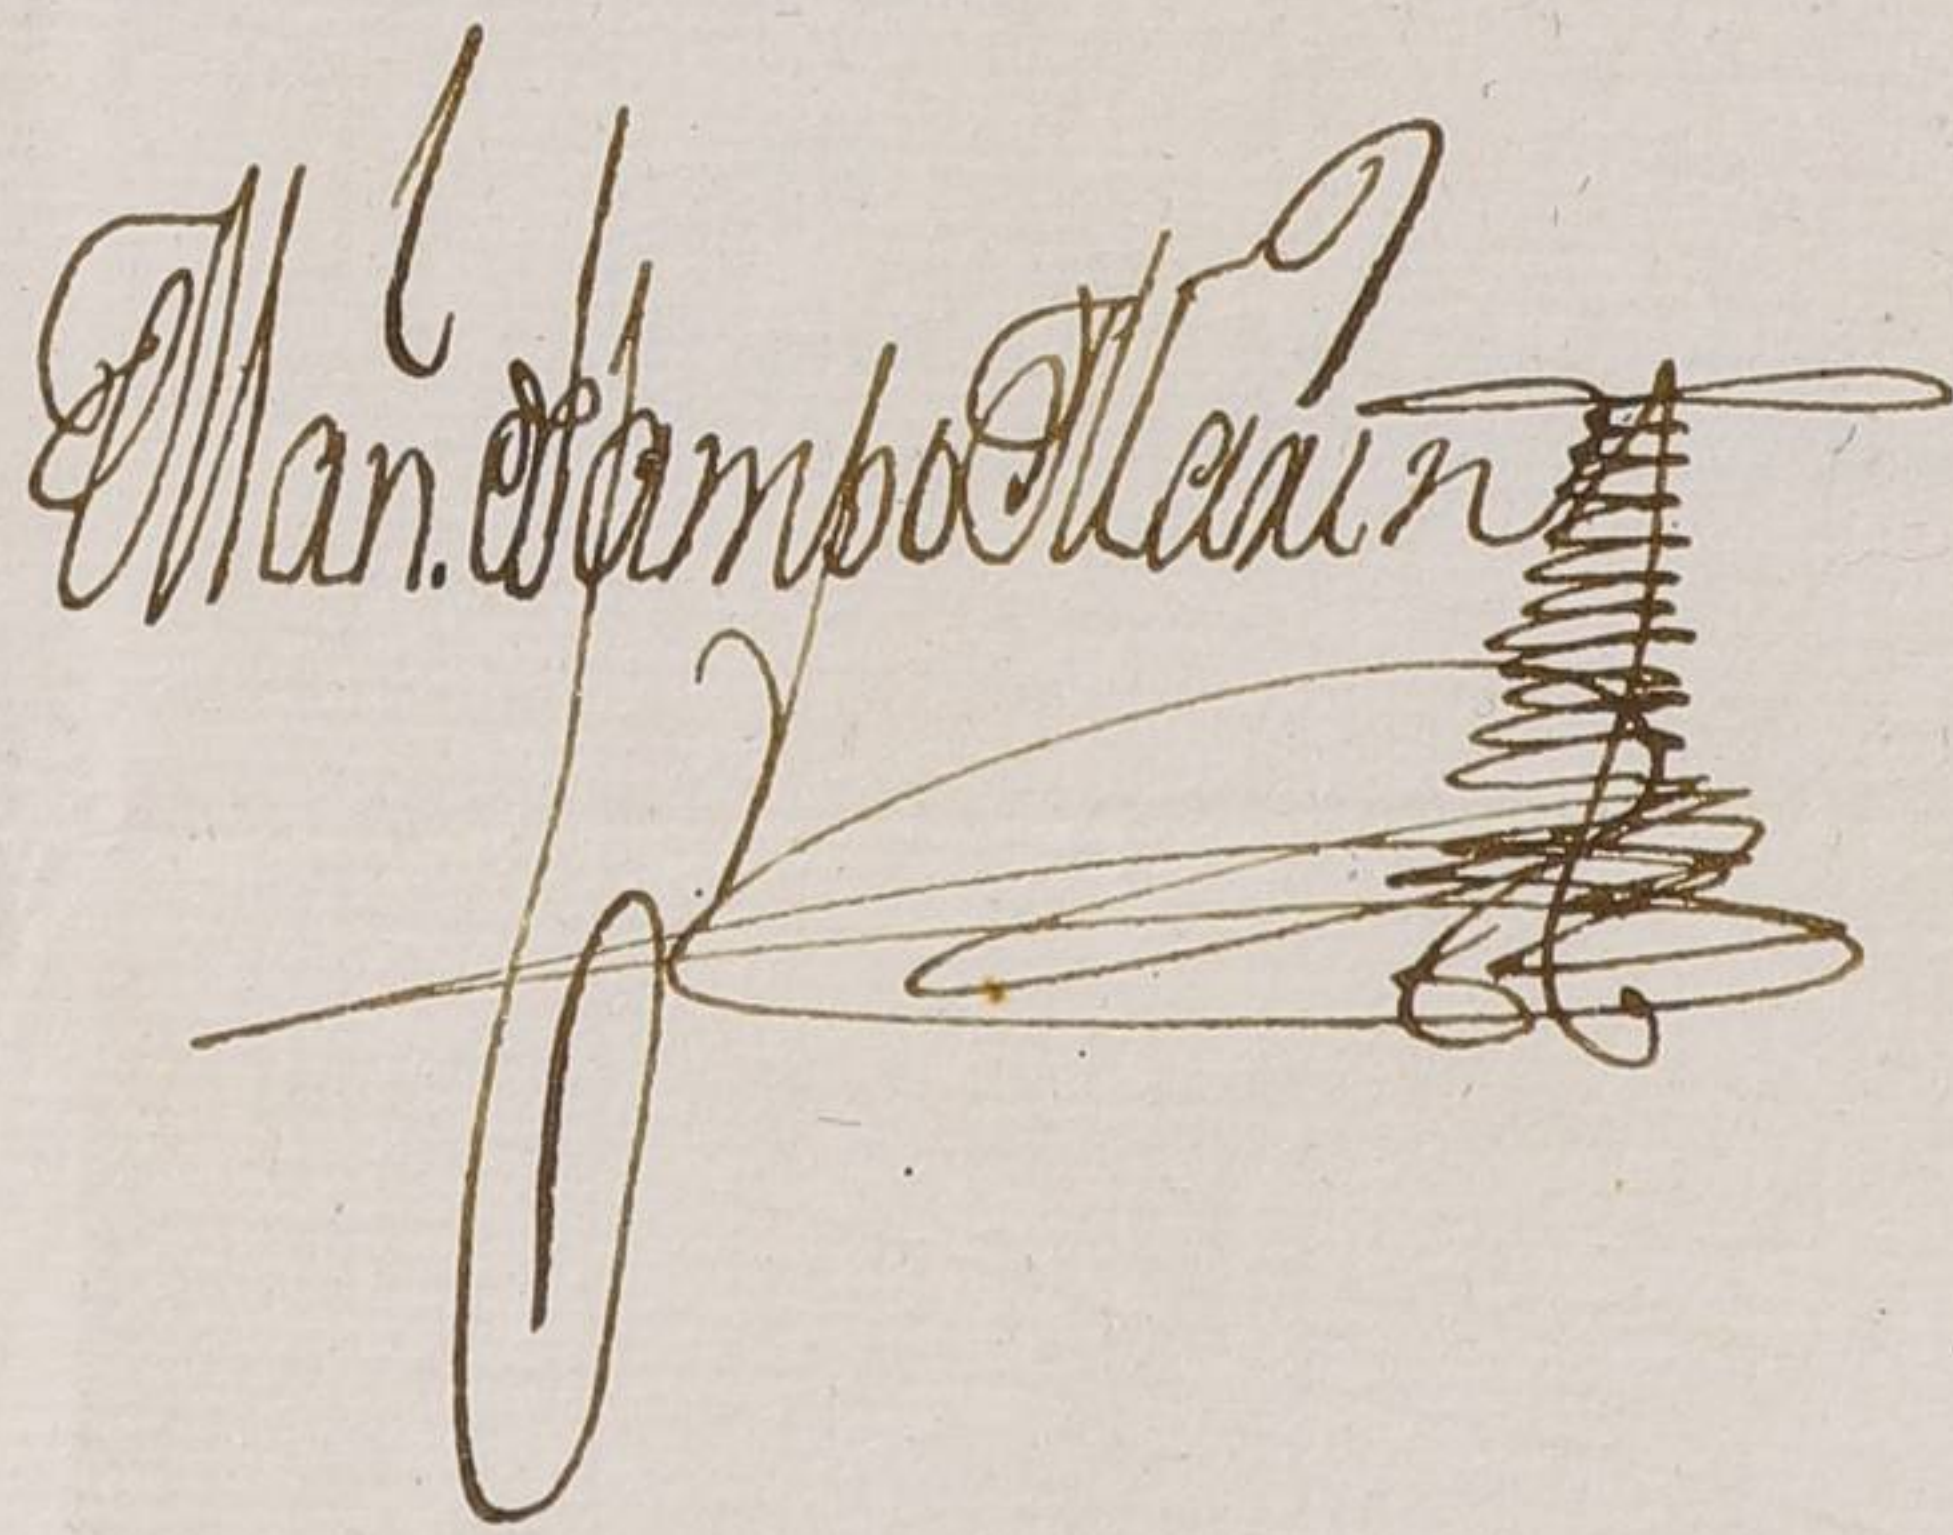 Man.l Campo Marin